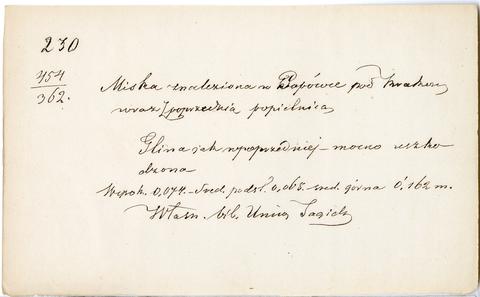 230
454
362.
Miska znaleziona w pod
wraz z poprzednią popielnicą
Glina jak w poprzedniej – mocno uszko
dzona
Wysok. 0,074. – Śred. podst. 0,065. śred. górna 0,162 m.
Własn. bib. Uniw. Jagiell